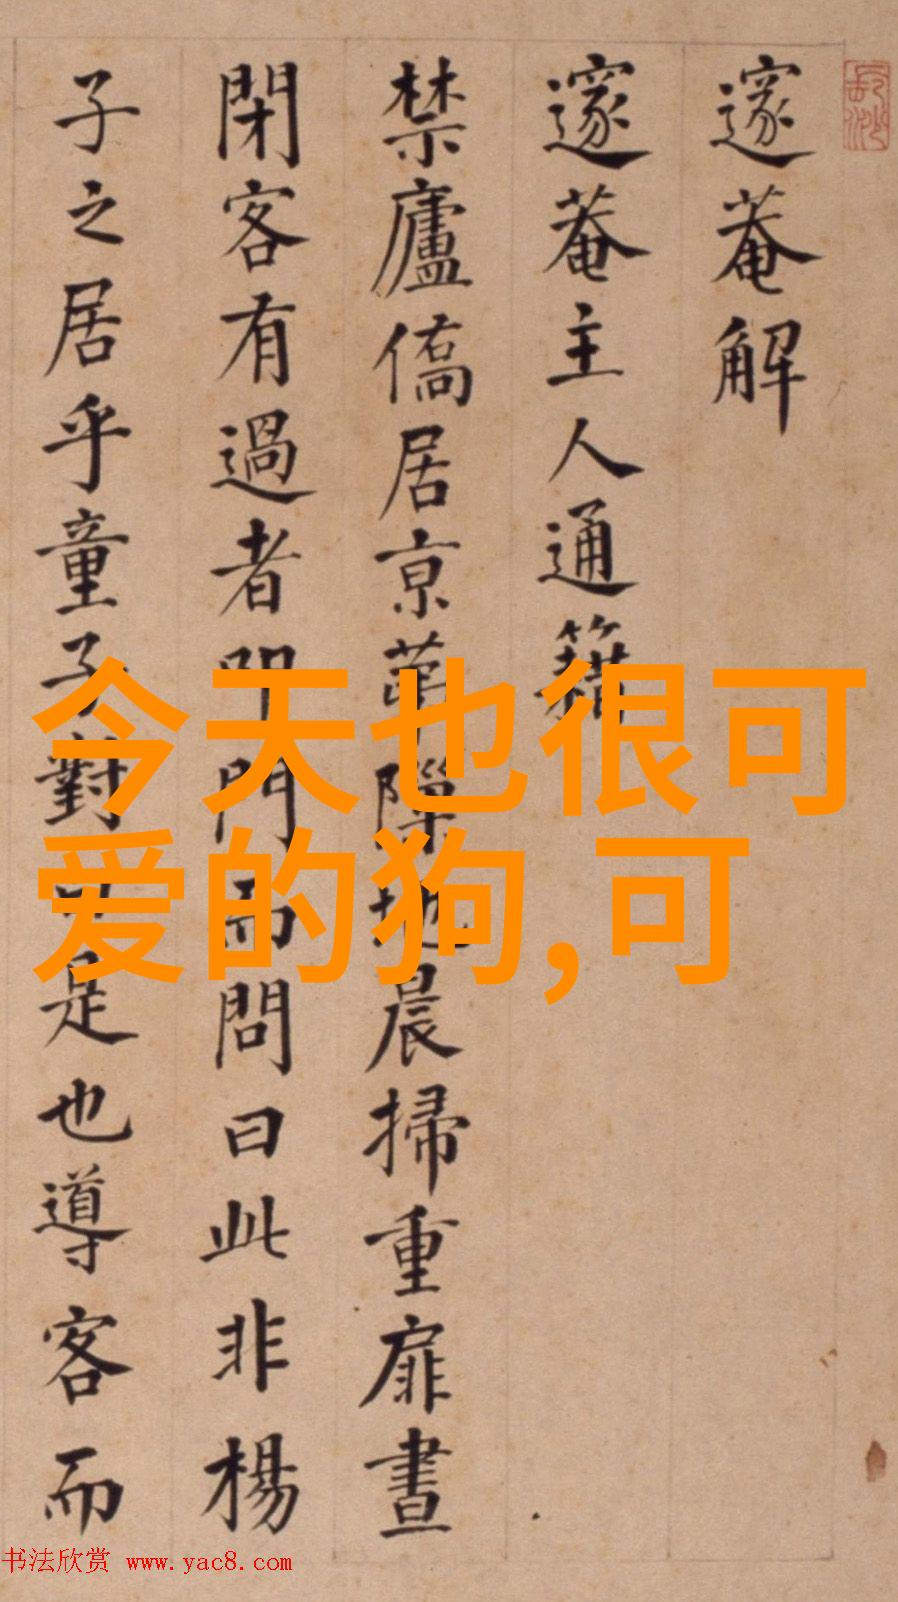 邃菴解
邃菴主人通籍
禁廬僑居京華隙地晨掃重扉晝
閉客有過者叩門而問曰此非楊
子之居乎童子對曰是也導客而
今天也很可
爱的狗,可
书法欣赏 www.yac8.com